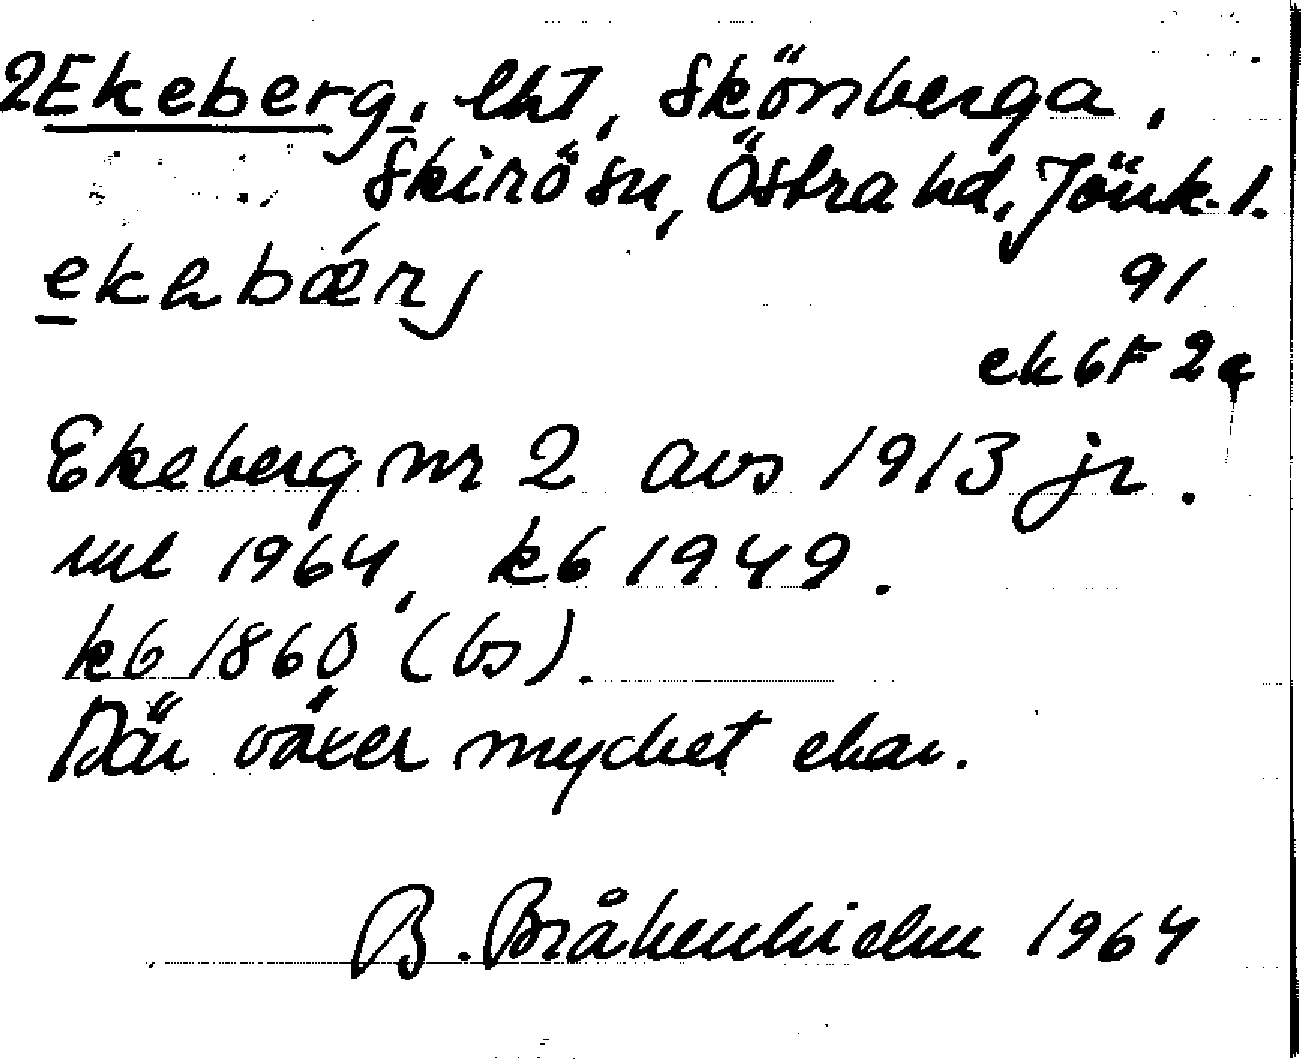 2 Ekeberg, lht, Skönberga,
Skirö sn, Östra hd, Jönk. l.
ekabærj
91
ek 6F 2q
Ekeberg nr 2 avs 1913 jr.
ml 1964, kb 1949.
kb 1860 (bs).
Där växer mycket ekar.
B. Bråkenhielm 1964